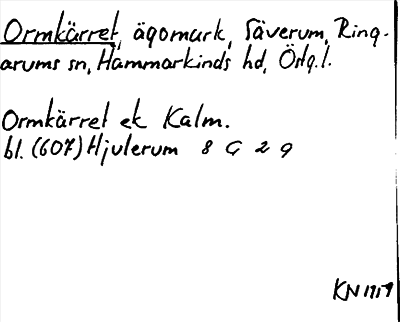 Ormkärret, ägomark, Säverum, Ring-
arums sn, Hammarkinds hd, Östg.l.
Ormkärret ek Kalm.
bl. (607) Hjulerum 8 G 2 g
KN 1959